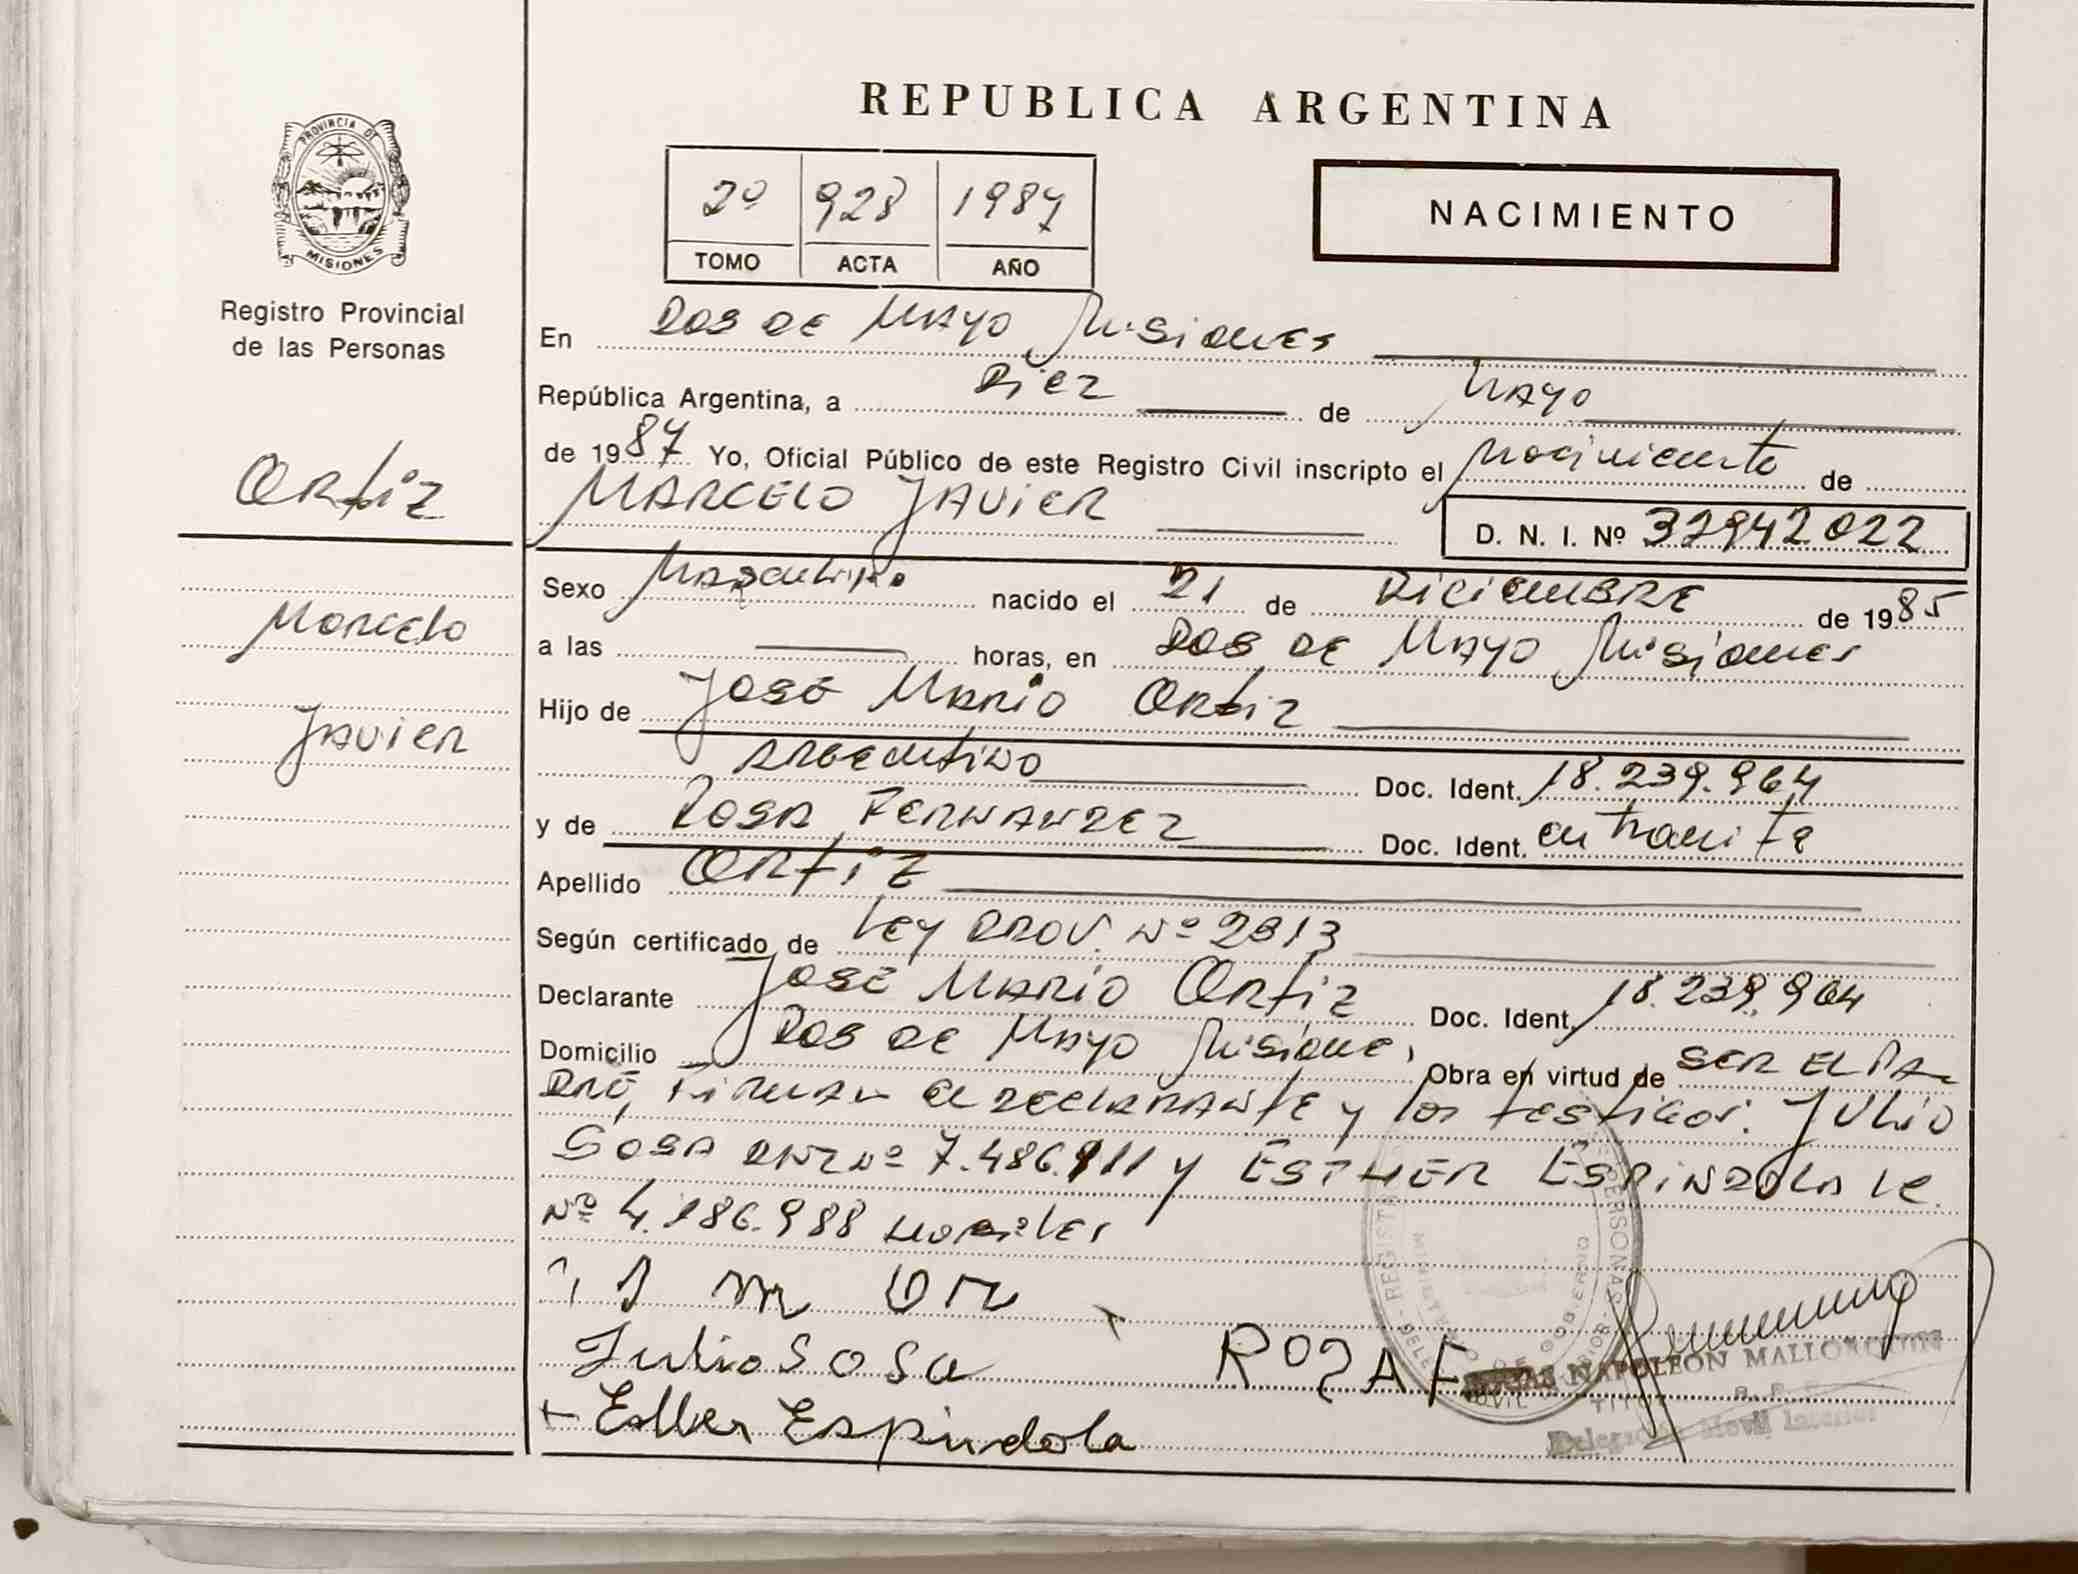 REPUBLICA ARGENTINA
PROVINCIA DE
MISIONES
Registro Provincial
de las Personas
2º 928 1987
TOMO ACTA AÑO
NACIMIENTO
En Dos de Mayo Misiones
República Argentina, a Diez de Mayo
de 1987 Yo, Oficial Público de este Registro Civil inscripto el Nacimiento de
Ortiz
MARCELO JAVIER
D. N. I. Nº 32942022
Sexo Masculino nacido el 21 de Diciembre de 1985
Marcelo
a las horas, en Dos de Mayo Misiones
Hijo de José Mario Ortiz
Javier
Argentino Doc. Ident. 18.239.964
y de Rosa Fernandez Doc. Ident. en tramite
Apellido Ortiz
Según certificado de Ley Prov. Nº 2313
Declarante José Mario Ortiz Doc. Ident. 18.239.964
Domicilio Dos de Mayo Misiones, Obra en virtud de ser el pa-
dre, Firman el declarante y los testigos: Julio
Sosa DNI Nº 7.486.911 y Esther Espindola LC.
Nº 4.186.988 habiles
J m or
Julio Sosa
ROSA F
NAPOLEON MALLORQUIN
Delegación Movil Interior
Esther Espindola